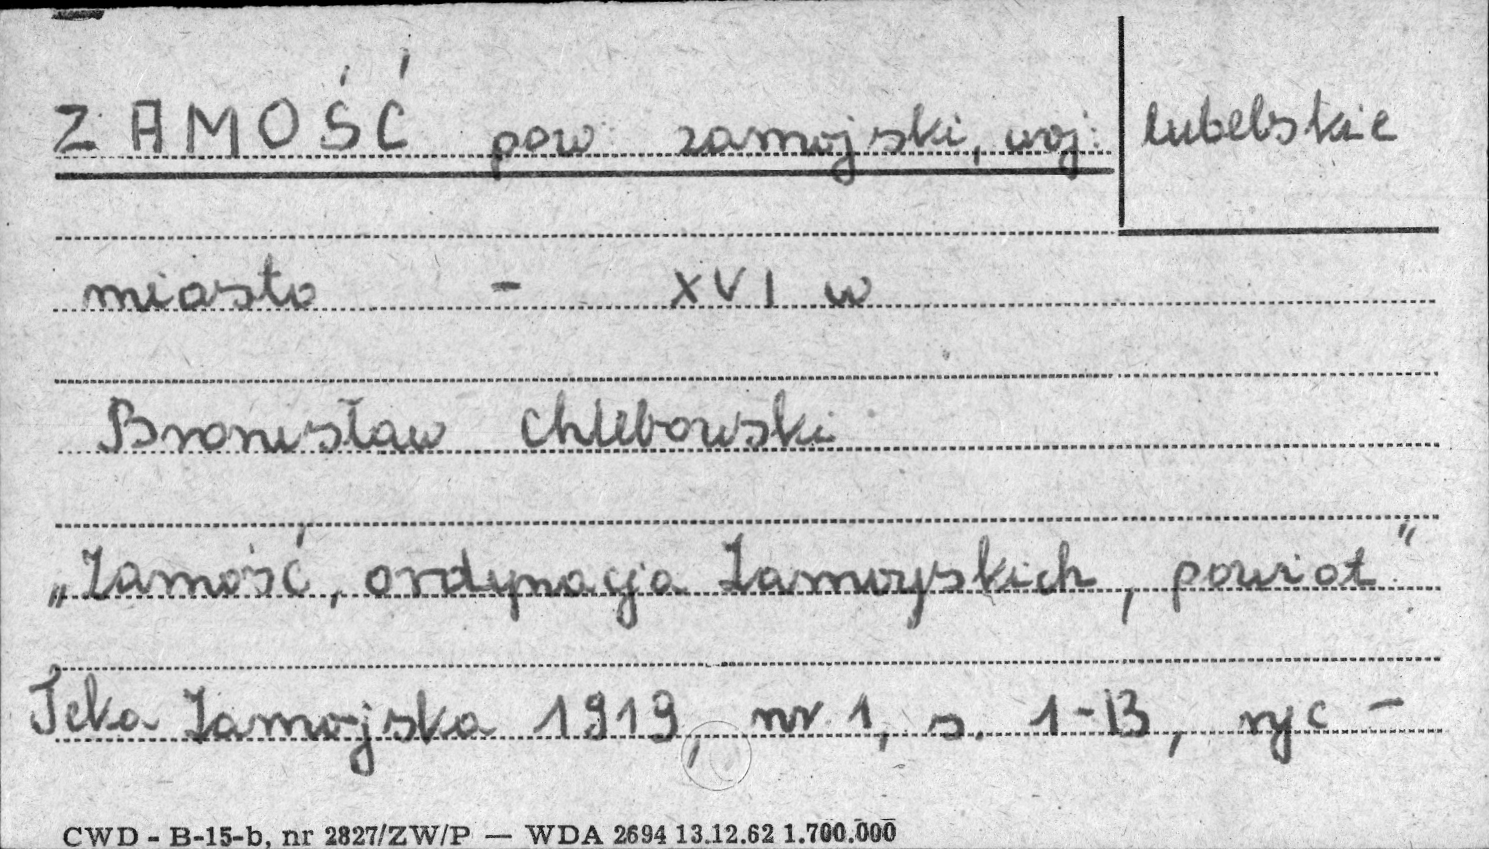 ZAMOŚĆ pow. zamojski, woj. lubelskie
miasto - XVI w
Bronisław Chlebowski
„Zamość, ordynacja Zamoyskich, powiat"
Teka Zamojska 1919, nr 1, s. 1-13, ryc -
CWD - B-15-b, nr 2827/ZW/P — WDA 2694 13.12.62 1.700.000